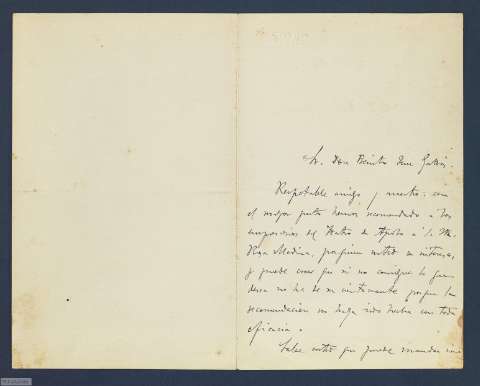 Sr. Don Benito Perez Galdós.
Respetable amigo y maestro: con
el mayor gusto hemos recomendado a los
empresarios del Teatro de Apolo á la Sta
Rosa Medina, por quien usted se interesa,
y puede creer que si no consigue lo que
desea no ha de ser ciertamente porque la
recomendación no haya sido hecha con toda
eficacia.
Sabe usted que puede mandar